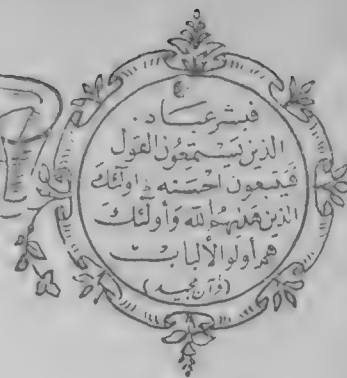 فبشر عباد .
الذين يستمعون القول
فيتبعون احسنه . اولئك
الذين هداهم الله وأولئك
هم أولوا الألباب
(قرآن مجيد)